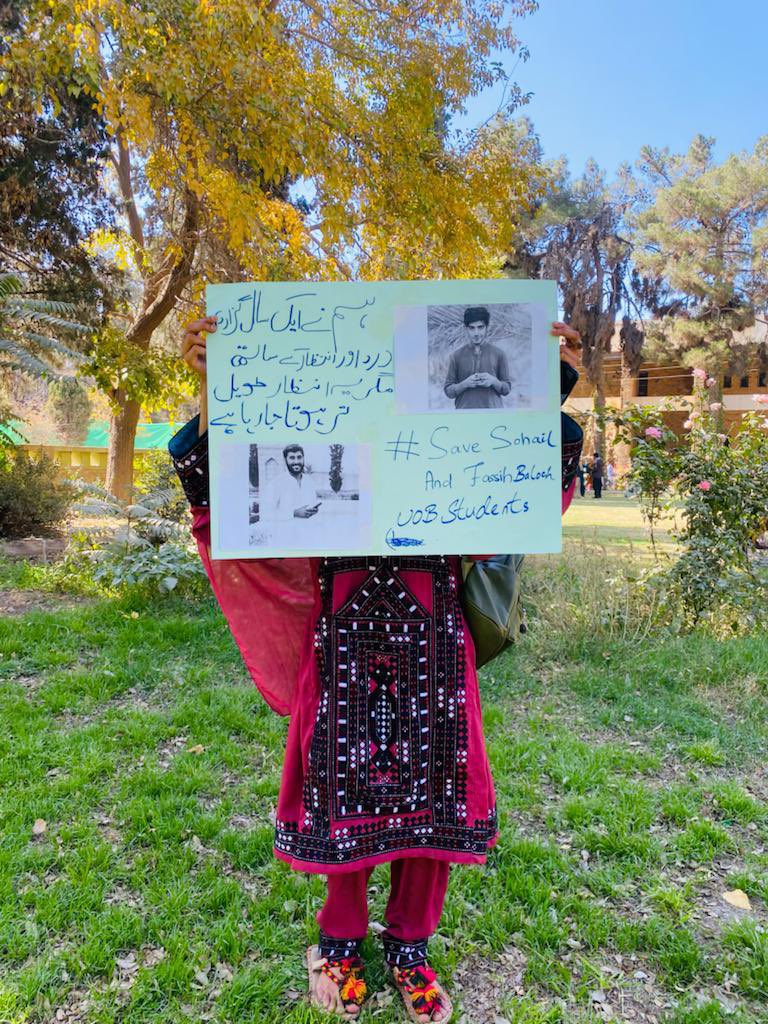 ہم نے ایک سال گزارا
درد اور انتظار کے ساتھ
مگر یہ انتظار طویل
تر ہوتا جا رہا ہے
# Save Sohail
And Fassih Baloch
UOB Students